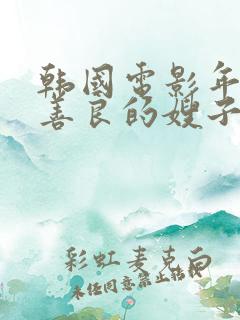 韩国电影年
善良的嫂子
彩虹麦克白
未经同意禁止转载